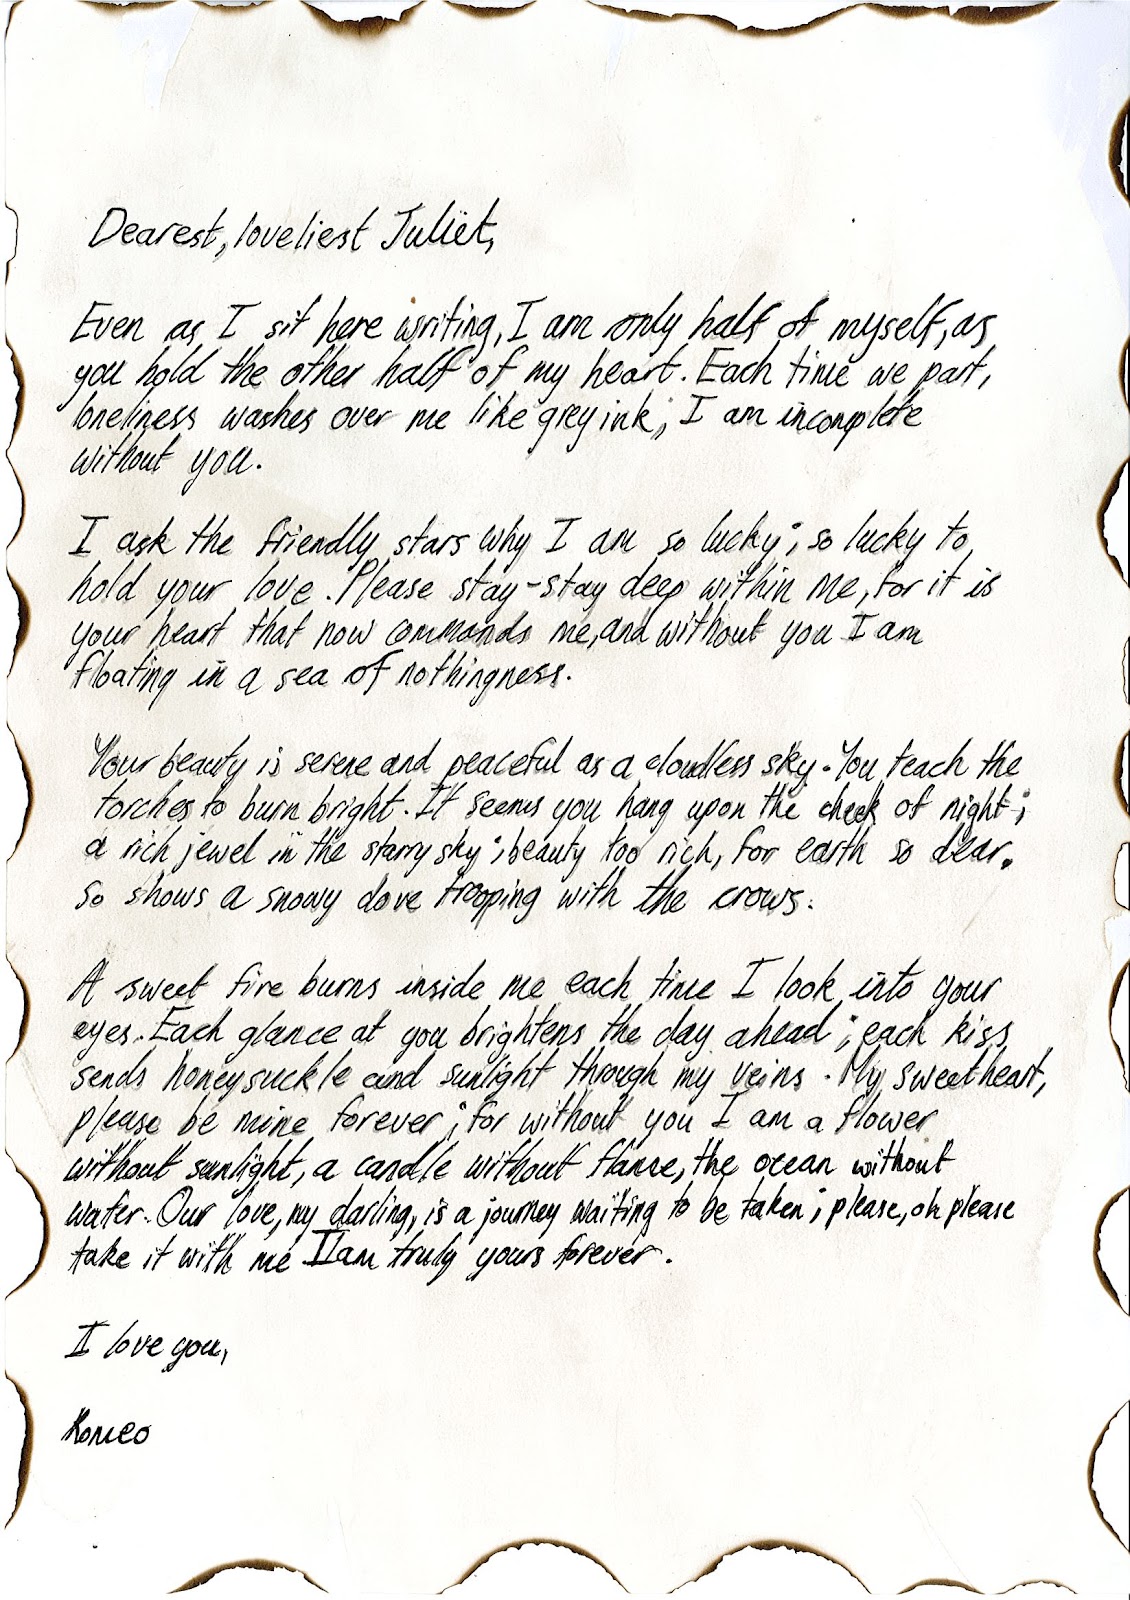 Dearest, loveliest Juliet,
Even as I sit here writing, I am only half of myself, as
you hold the other half of my heart. Each time we part,
loneliness washes over me like grey ink; I am incomplete
without you.
I ask the friendly stars why I am so lucky; so lucky to
hold your love. Please stay-stay deep within me, for it is
your heart that now commands me, and without you I am
floating in a sea of nothingness.
Your beauty is serene and peaceful as a cloudless sky. You teach the
torches to burn bright. It seems you hang upon the cheek of night;
a rich jewel in the starry sky; beauty too rich, for earth so dear.
So shows a snowy dove trooping with the crows.
A sweet fire burns inside me each time I look into your
eyes. Each glance at you brightens the day ahead; each kiss
sends honeysuckle and sunlight through my veins. My sweetheart,
please be mine forever; for without you I am a flower
without sunlight, a candle without flame, the ocean without
water. Our love, my darling, is a journey waiting to be taken; please, oh please
take it with me I am truly yours forever.
I love you,
Romeo